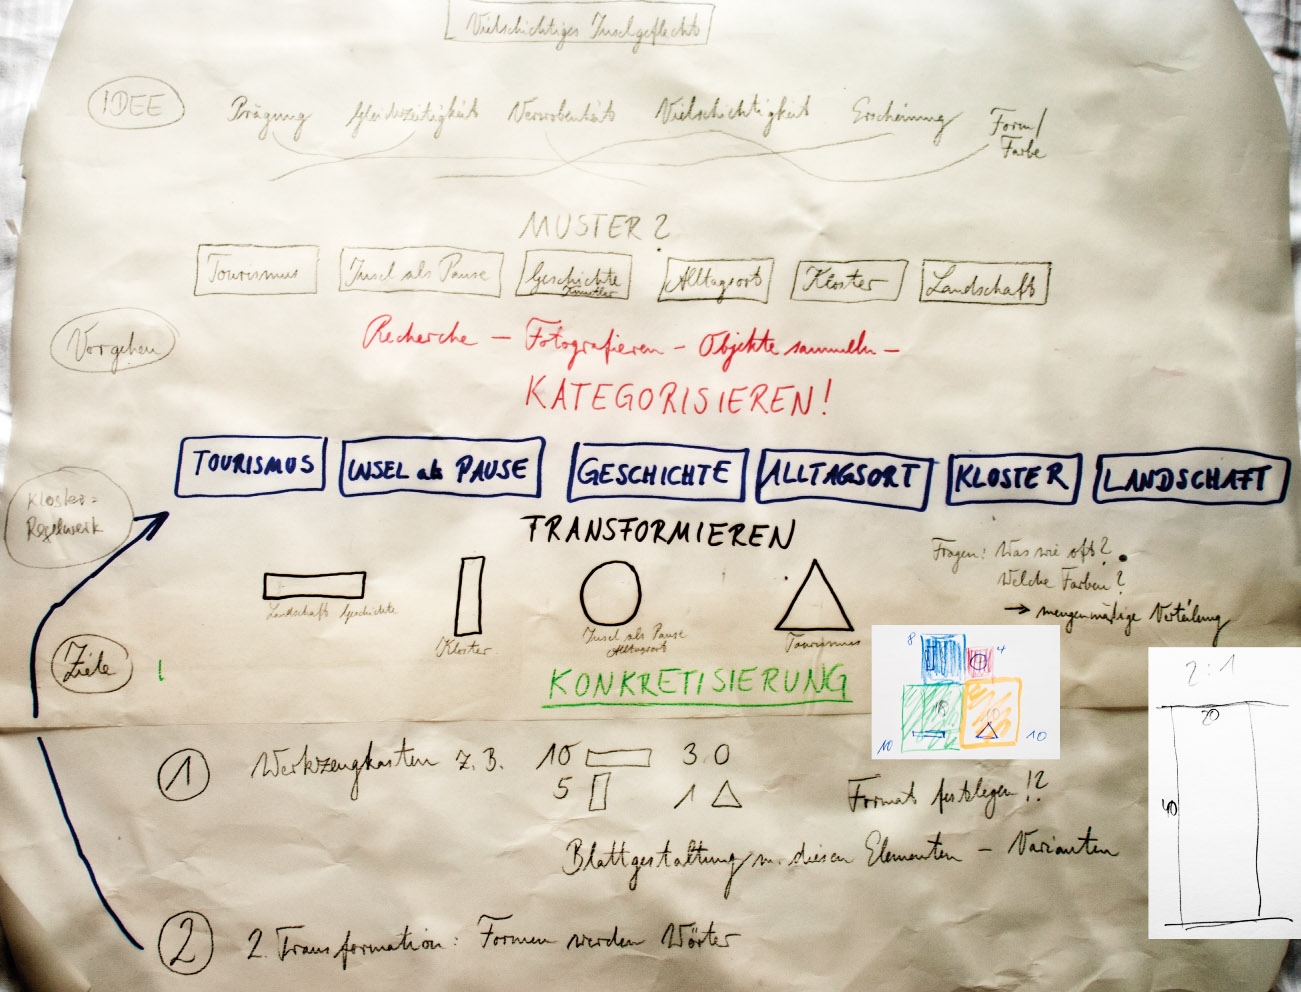 Vielschichtiges Inselgeflecht
IDEE
Prägung Gleichzeitigkeit Verwobenheit Vielschichtigkeit Erscheinung Form/
Farbe
MUSTER?
Tourismus Insel als Pause Geschichte Alltagsort Kloster Landschaft
Künstler
Vorgehen
Recherche – Fotografieren – Objekte sammeln –
KATEGORISIEREN!
TOURISMUS INSEL als PAUSE GESCHICHTE ALLTAGSORT KLOSTER LANDSCHAFT
Kloster=
Regelwerk
TRANSFORMIEREN
Fragen: Was wie oft?
Welche Farben?
→ mengenmäßige Verteilung
Landschaft Geschichte
Kloster
Insel als Pause
Alltagsort
Tourismus
Ziele
KONKRETISIERUNG
8 4
10 10
2:1
20
40
1 Werkzeugkasten z.B. 10 3
5 1
Format festlegen!?
Blattgestaltung m. diesen Elementen – Varianten
2 2. Transformation: Formen werden Wörter